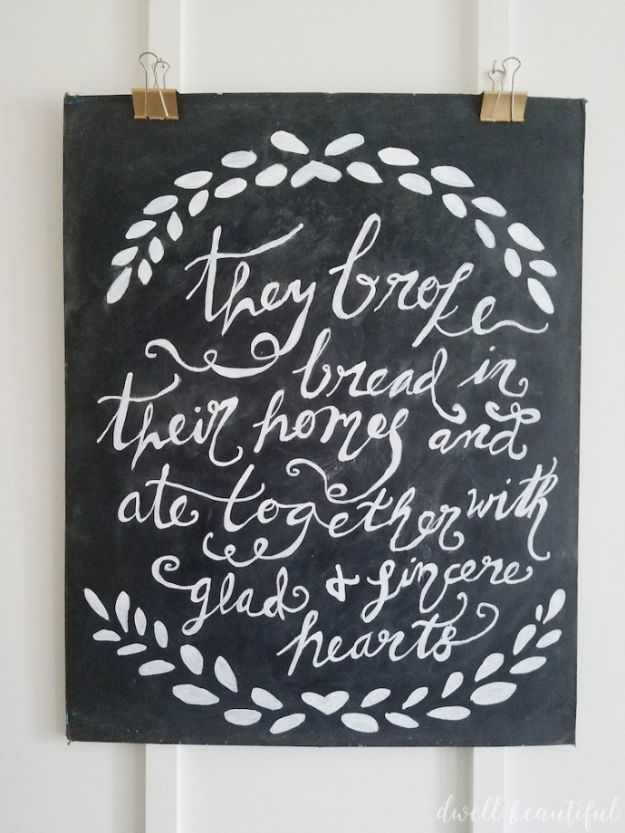 they broke
bread in
their homes and
ate together with
glad & sincere
hearts
dwell beautiful